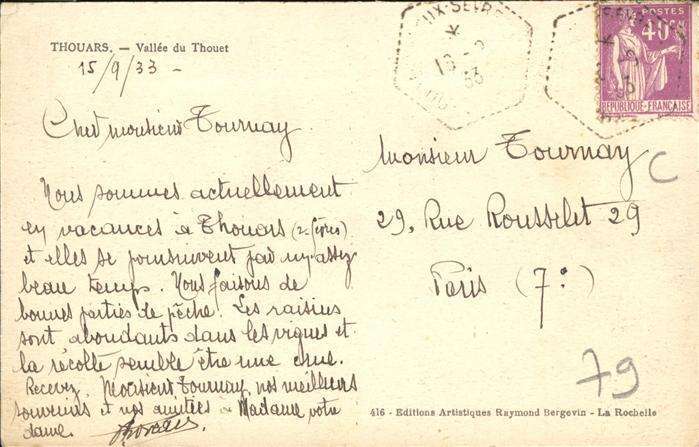 THOUARS. — Vallée du Thouet
15/9/33 -
Cher monsieur Tournay
Nous sommes actuellement
en vacances à Thouars (2. Sèvres)
et elles se poursuivent par un assez
beau temps. Nous faisons de
bonnes parties de pêche. Les raisins
sont abondants dans les vignes et
la récolte semble être une crue.
Recevez, Monsieur Tournay, nos meilleurs
souvenirs et nos amitiés à Madame votre
dame.
Monsieur Tournay
29, Rue Rousselet 29
Paris (7e)
C
79
416 - Editions Artistiques Raymond Bergevin - La Rochelle
POSTES
40c
REPUBLIQUE-FRANÇAISE